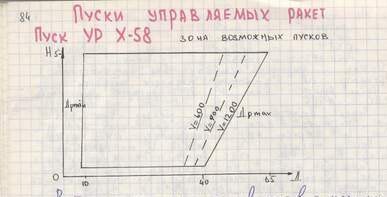 84
ПУСКИ УПРАВЛЯЕМЫХ РАКЕТ
ПУСК УР Х-58 ЗОНА ВОЗМОЖНЫХ ПУСКОВ
Н
Дрmin
V=600
V=900
V=1200
Дрmax
0 10 40 55 Д